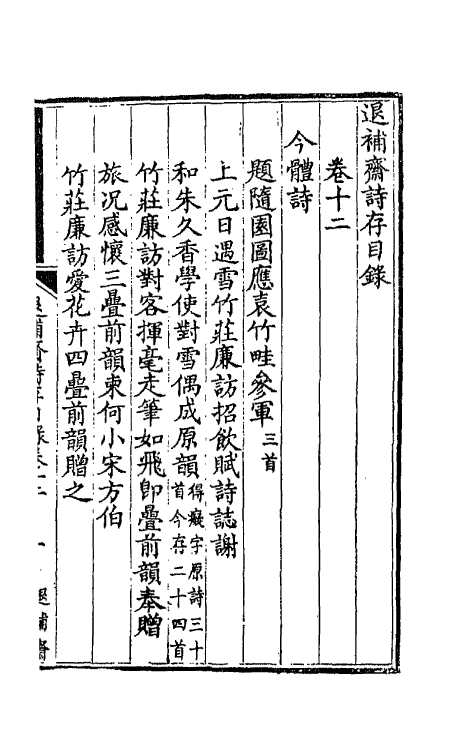 退補齋詩存目錄
卷十二
今體詩
題隨園圖應袁竹畦參軍三首
上元日遇雪竹莊廉訪招飲賦詩誌謝
和朱久香學使對雪偶成原韻得癡字原詩三十首今存二十四首
竹莊廉訪對客揮毫走筆如飛卽疊前韻奉贈
旅況感懷三疊前韻柬何小宋方伯
竹莊廉訪愛花卉四疊前韻贈之
退補齋詩存目錄卷十二 一 退補齋